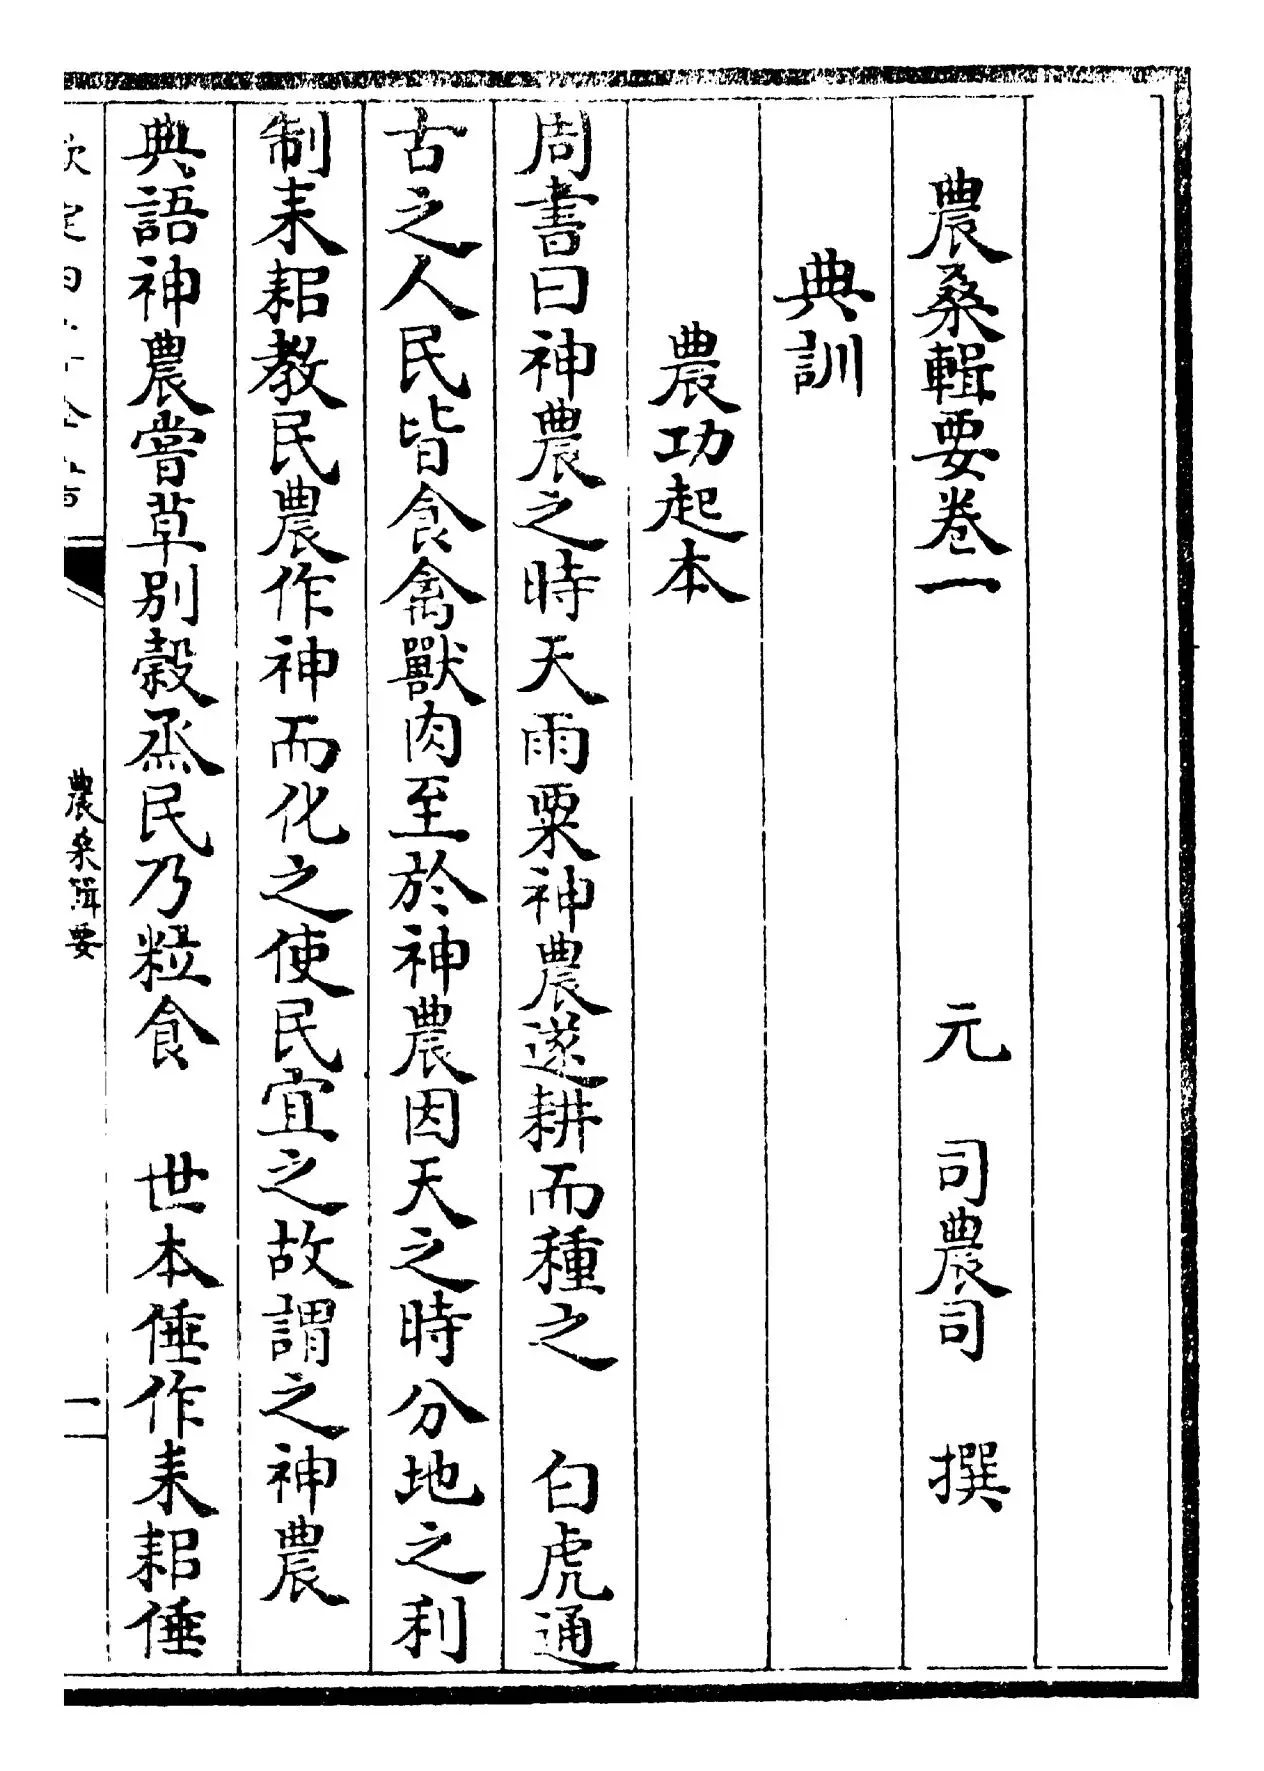 農桑輯要卷一 元 司農司 撰
典訓
農功起本
周書曰神農之時天雨粟神農遂耕而種之 白虎通
古之人民皆食禽獸肉至於神農因天之時分地之利
制耒耜教民農作神而化之使民宜之故謂之神農
典語神農嘗草別穀烝民乃粒食 世本倕作耒耜倕
欽定四庫全書
農桑輯要
一